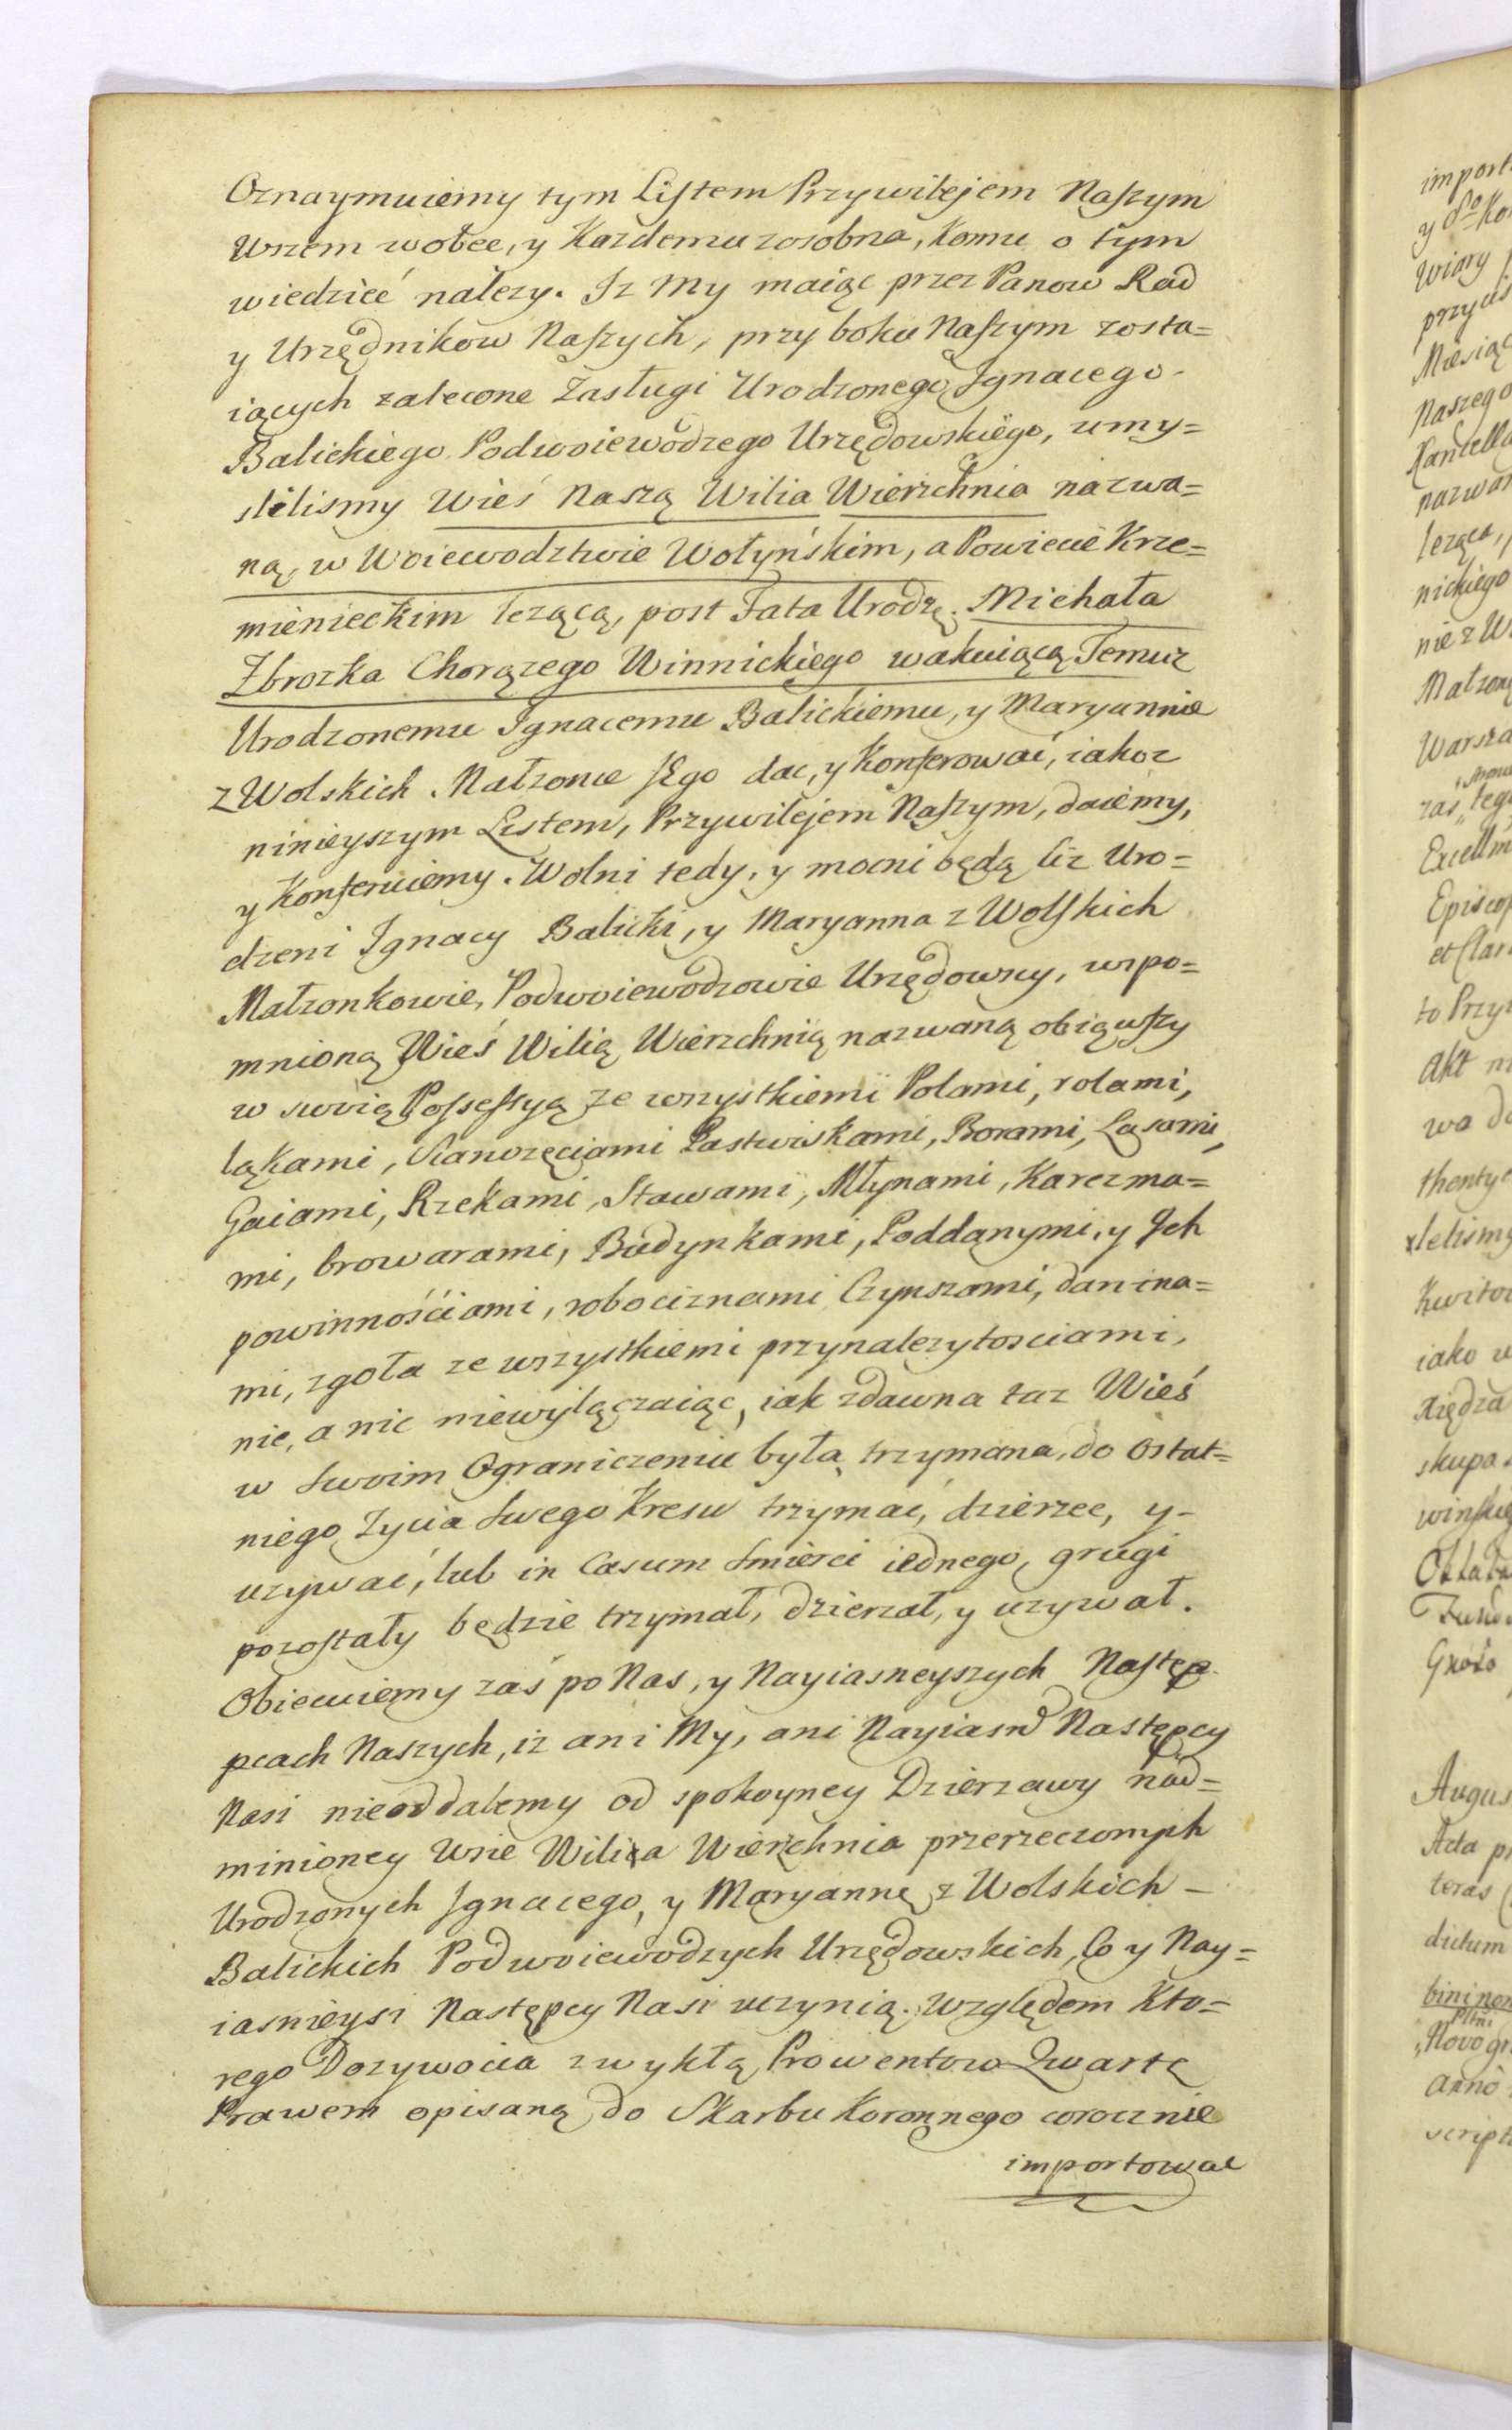 Oznaymuiemy tym Listem Przywilejem Naszym
Wszem wobec, y Kazdemu zosobna, komu o tym
wiedzieć nalezy. Iz My maiąc przez Panow Rad
y Urzędnikow Naszych, przy boku Naszym zosta=
iących zalecone Zasługi Urodzonego Ignacego
Balickiego Podwoiewodzego Urzędowskiego, umy=
slilismy Wieś Naszą Wilia Wierzchnia nazwa=
ną, w Woiewodztwie Wołyńskim, a Powiecie Krze=
mienieckim lezącą, post Fata Urodz. Michała
Zbrozka Chorązego Winnickiego wakuiącą Temuz
Urodzonemu Ignacemu Balickiemu, y Maryannie
z Wolskich Małzonce JEgo dac, y Konferować, iakoz
ninieyszym Listem, Przywilejem Naszym, daiemy,
y Konferuiemy. Wolni tedy, y mocni będą ciz Uro=
dzeni Ignacy Balicki, y Maryanna z Wolskich
Małzonkowie, Podwoiewodzowie Urzędowscy, wspo=
mnioną Wieś Wilią Wierzchnią nazwaną obiąwszy
w swoią Possessyą ze wszystkiemi Polami, rolami,
ląkami, Sianozęciami Pastwiskami, Borami, Lasami,
Gaiami, Rzekami, Stawami, Młynami, Karczma=
mi, browarami, Budynkami, Poddanymi, y Jch
powinnościami, robociznami Czynszami, danina=
mi, zgoła ze wszystkiemi przynalezytosciami,
nic, a nic niewyłączaiąc, iak zdawna taz Wieś
w swoim Ograniczeniu była trzymana, do ostat=
niego Zycia swego Kresu trzymać, dzierzec, y-
uzywać, lub in Casum smierci iednego, grugi
pozostały będzie trzymał, dzierzał, y uzywał.
Obiecuiemy zaś po Nas, y Nayiasneyszych Nastę
pcach Naszych, iz ani My, ani Nayiasn Następcy
Nasi nieoddalemy od spokoyney Dzierzawy nad=
minioney Wsie Wilia Wierzchnia przerzeczonych
Urodzonych Ignacego, y Maryannę z Wolskich -
Balickich Podwoiewodzych Urzędowskich, Co y Nay=
iasnieysi Następcy Nasi uczynią. Względem Kto=
rego Dozywocia zwykłą Prowentow Qwartę
Prawem opisaną do Skarbu Koronnego corocznie
importowac
import
y
wiary
przycis
Miesiąc
Naszego
Kancella
nazwan
leząca,
nickiego
nie z W
Małzon
Warsza
zas teg
Excellm
Episcop
et Clar
to Przy
Akt
wa
thentyc
lelismy
Kwitow
iako
Xiędza
skupa
winskie
Augus
Acta
teras
dictum
Novogr
anno
script